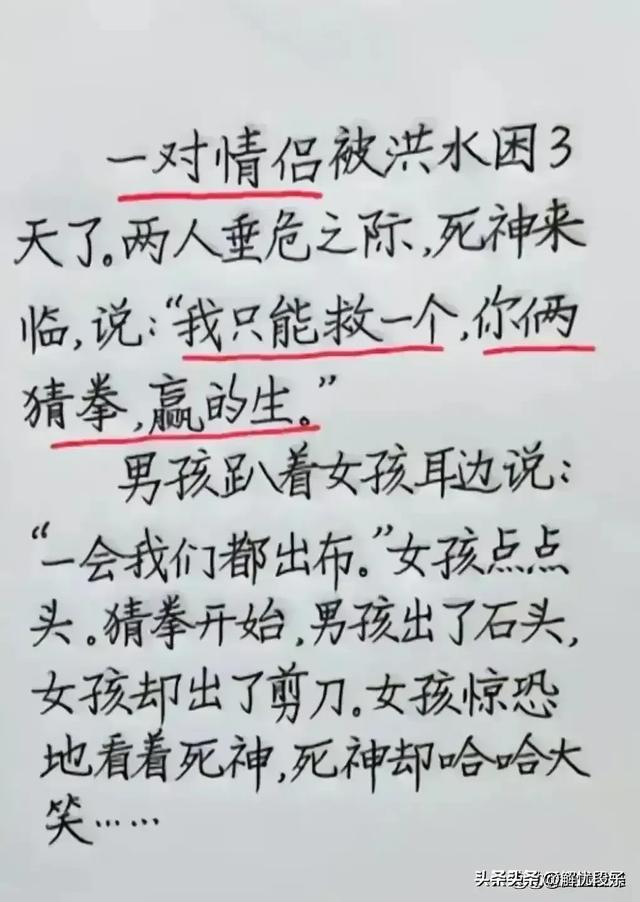 一对情侣被洪水困3
天了。两人垂危之际,死神来
临,说:“我只能救一个,你俩
猜拳,赢的生。”
男孩趴着女孩耳边说:
“一会我们都出布。”女孩点点
头。猜拳开始,男孩出了石头,
女孩却出了剪刀。女孩惊恐
地看着死神,死神却哈哈大
笑……
头条 @解忧段子